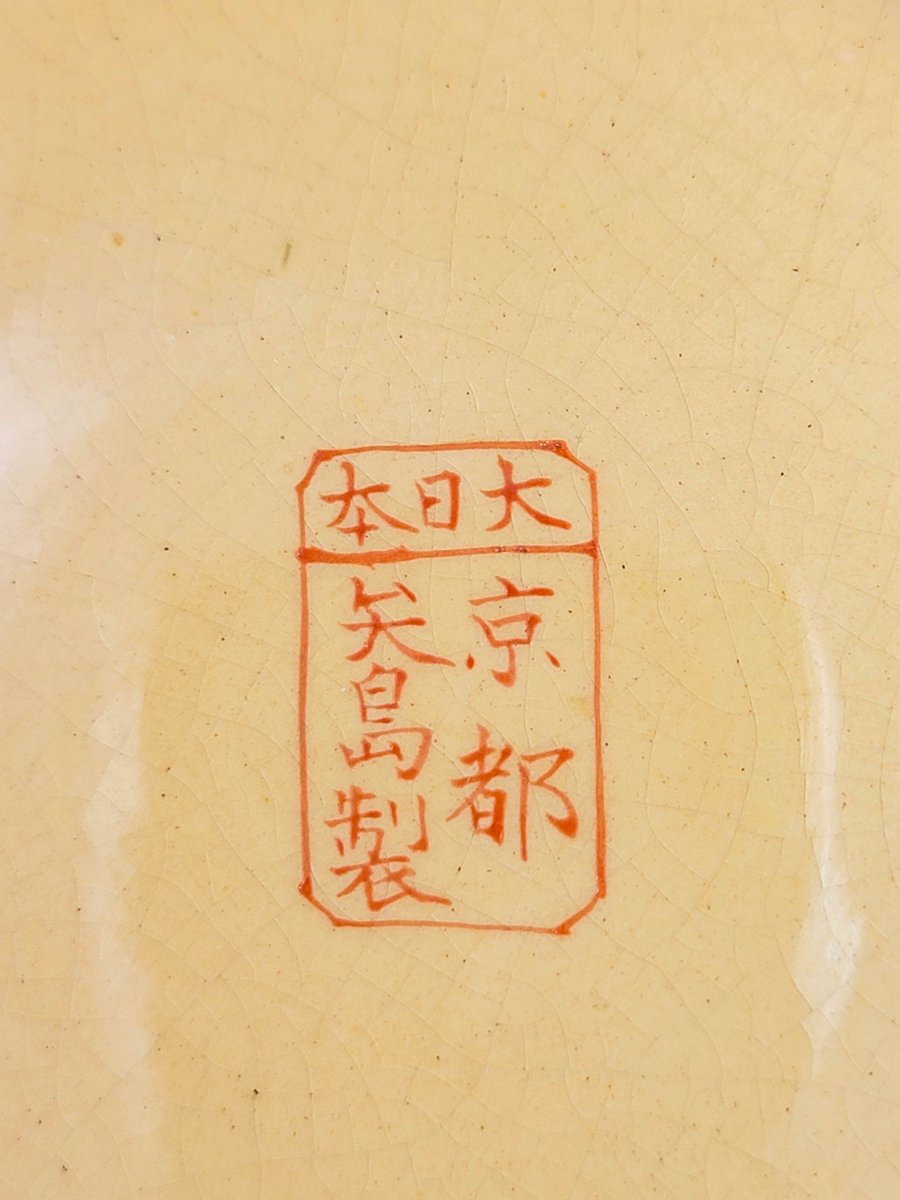 大日本
京都
矢島製